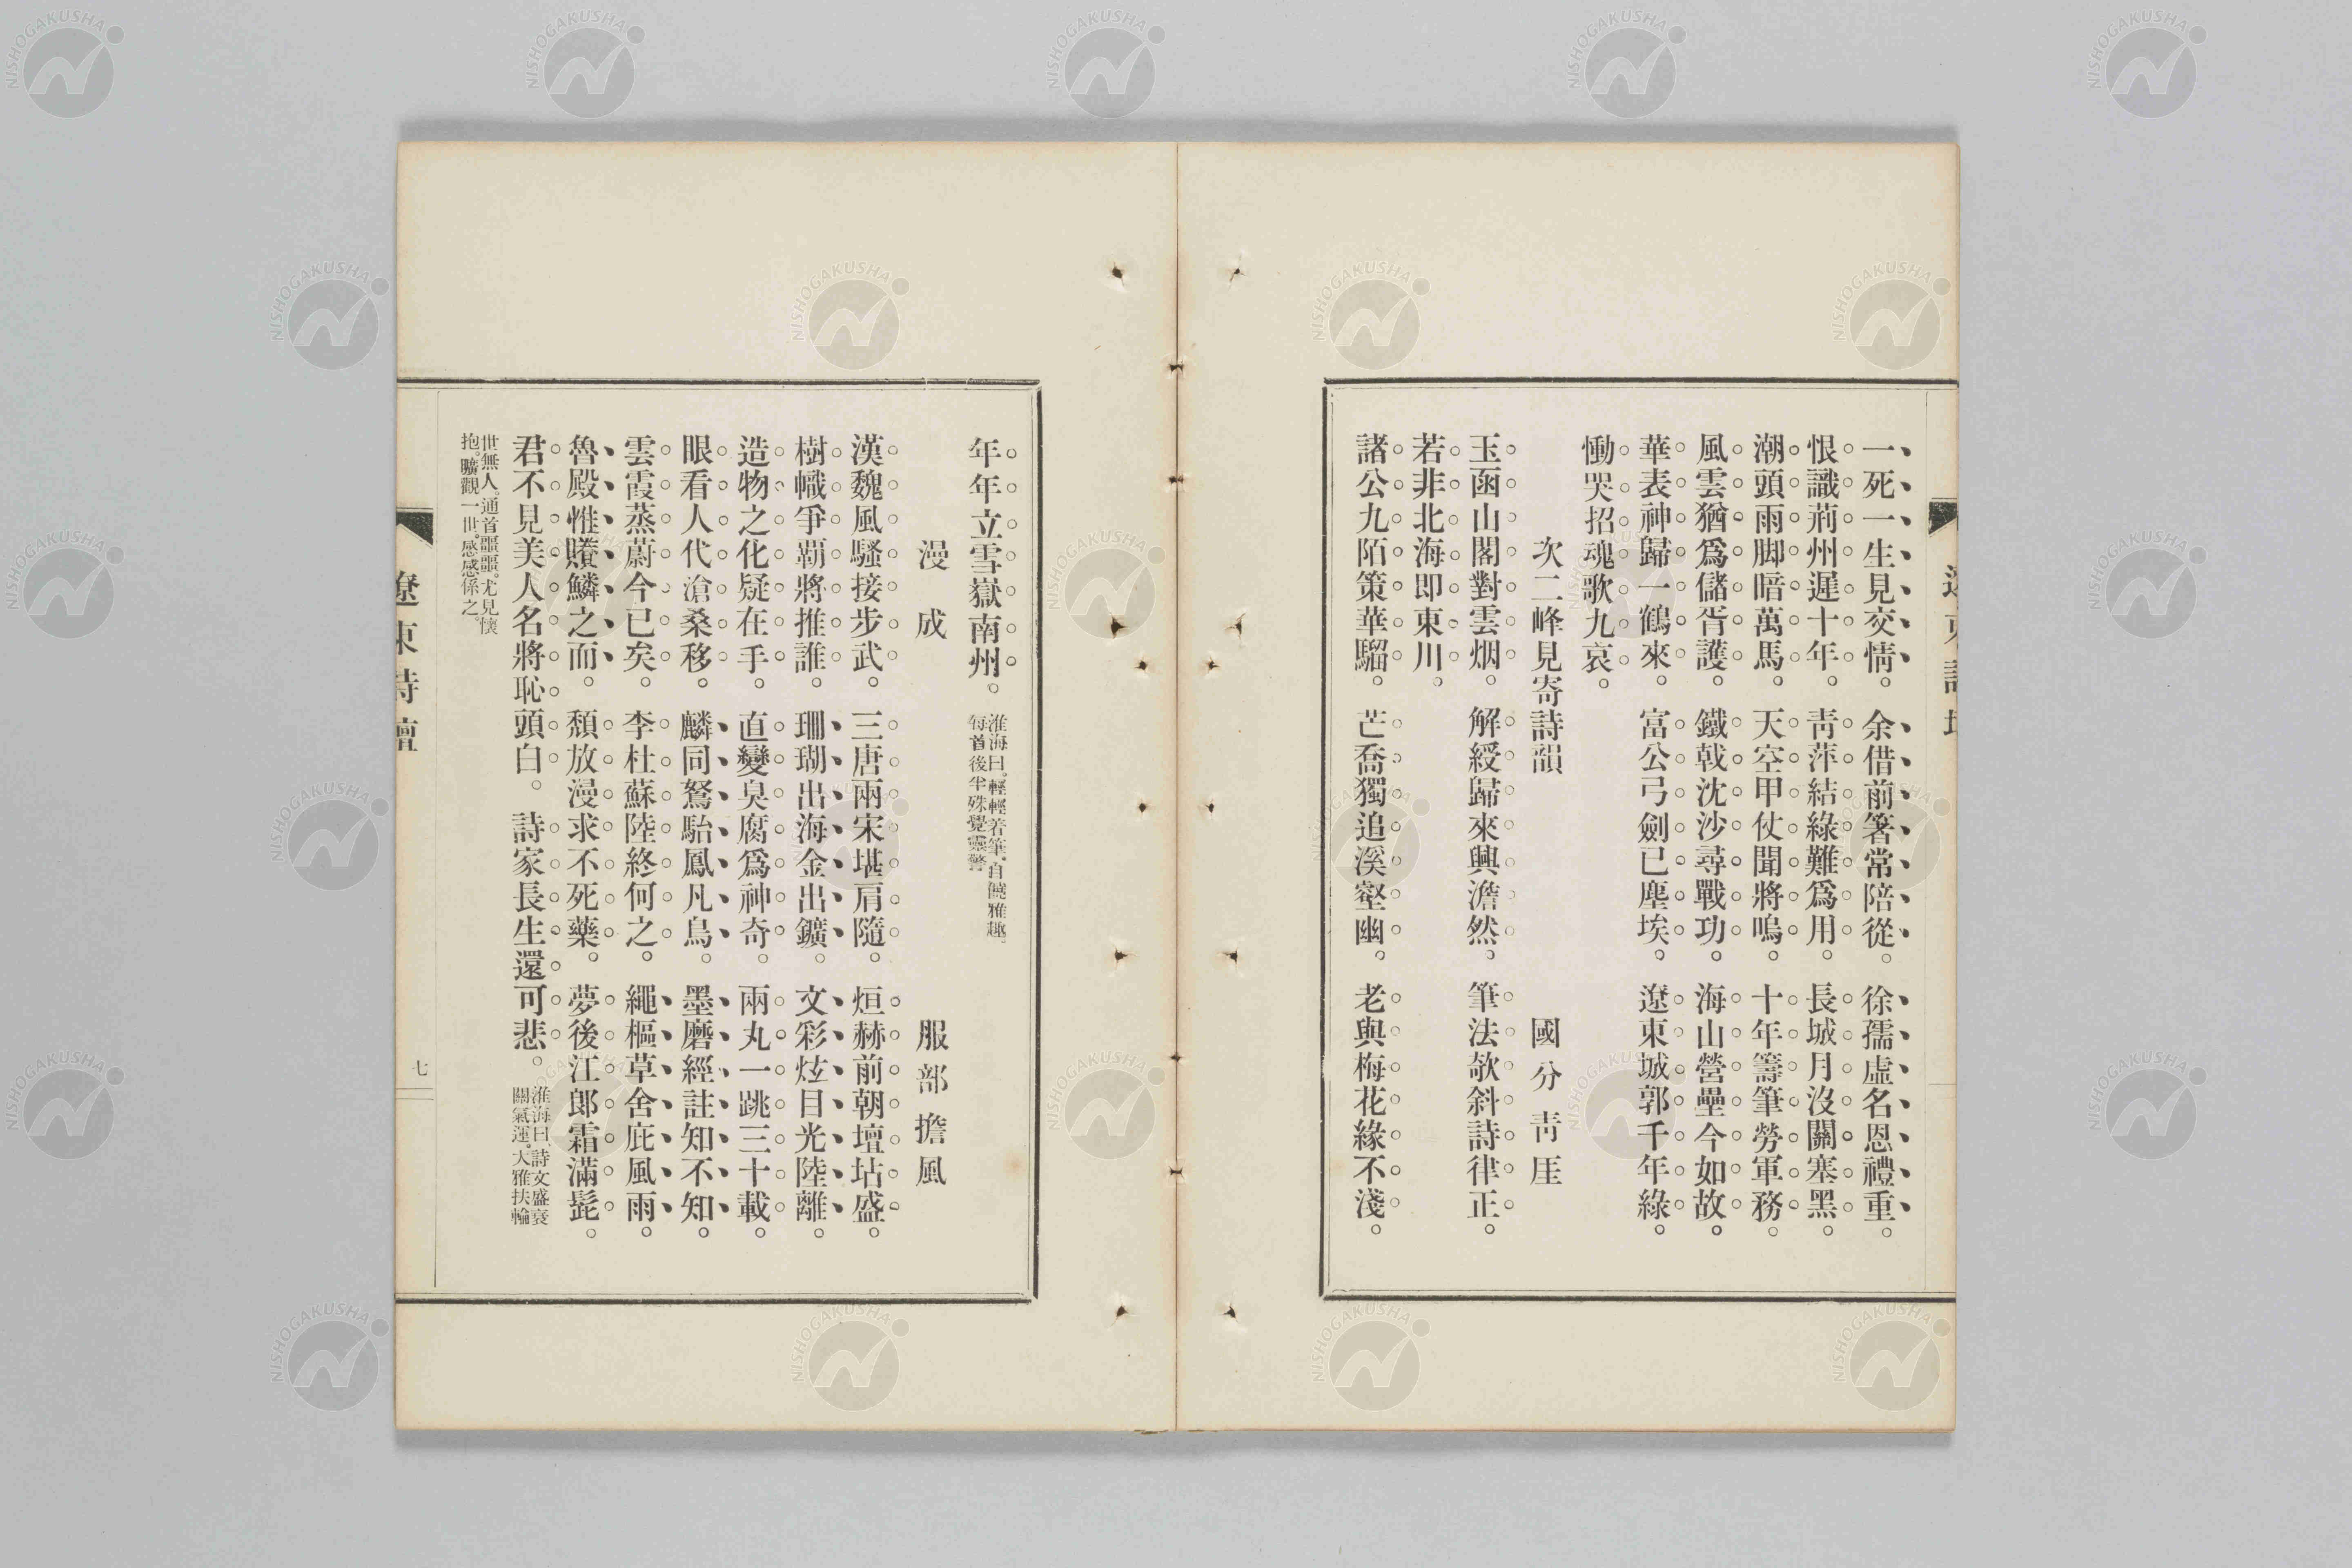 遼東詩壇
一死一生見交情。余借前箸常陪從。徐孺虛名恩禮重。
恨識荊州遲十年。靑萍結綠難爲用。長城月沒關塞黑。
潮頭雨脚暗萬馬。天空甲仗聞將鳴。十年籌筆勞軍務。
風雲猶爲儲胥護。鐵戟沈沙尋戰功。海山營壘今如故。
華表神歸一鶴來。富公弓劍已塵埃。遼東城郭千年綠。
慟哭招魂歌九哀。
次二峰見寄詩韻 國分靑厓
玉函山閣對雲烟。解綬歸來興澹然。筆法欹斜詩律正。
若非北海即東川。
諸公九陌策華騮。芒喬獨追溪壑幽。老與梅花緣不淺。
年年立雪嶽南州。淮海曰。輕輕着筆。自饒雅趣。
每首後半殊覺靈警
漫成 服部擔風
漢魏風騷接步武。三唐兩宋堪肩隨。烜赫前朝壇坫盛。
樹幟爭覇將推誰。珊瑚出海金出鑛。文彩炫目光陸離。
造物之化疑在手。直變臭腐爲神奇。兩丸一跳三十載。
眼看人代滄桑移。麟同駑駘鳳凡鳥。墨磨經註知不知。
雲霞蒸蔚今已矣。李杜蘇陸終何之。繩樞草舍庇風雨。
魯殿惟賸鱗之而。頹放漫求不死藥。夢後江郎霜滿髭。
君不見美人名將恥頭白。詩家長生還可悲。淮海曰、詩文盛衰
關氣運。大雅扶輪
世無人。通首噩噩。尤見懷
抱。曠觀一世。感慨係之。
遼東詩壇
七
NISHOGAKUSHA